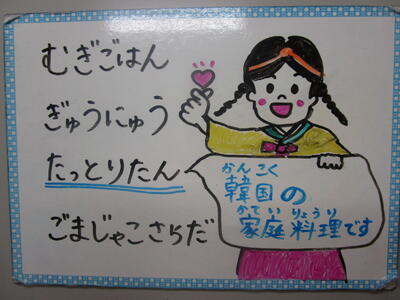 むぎごはん
ぎゅうにゅう
たっとりたん
ごまじゃこさらだ
かんこく
韓国の
かていりょうり
家庭料理です